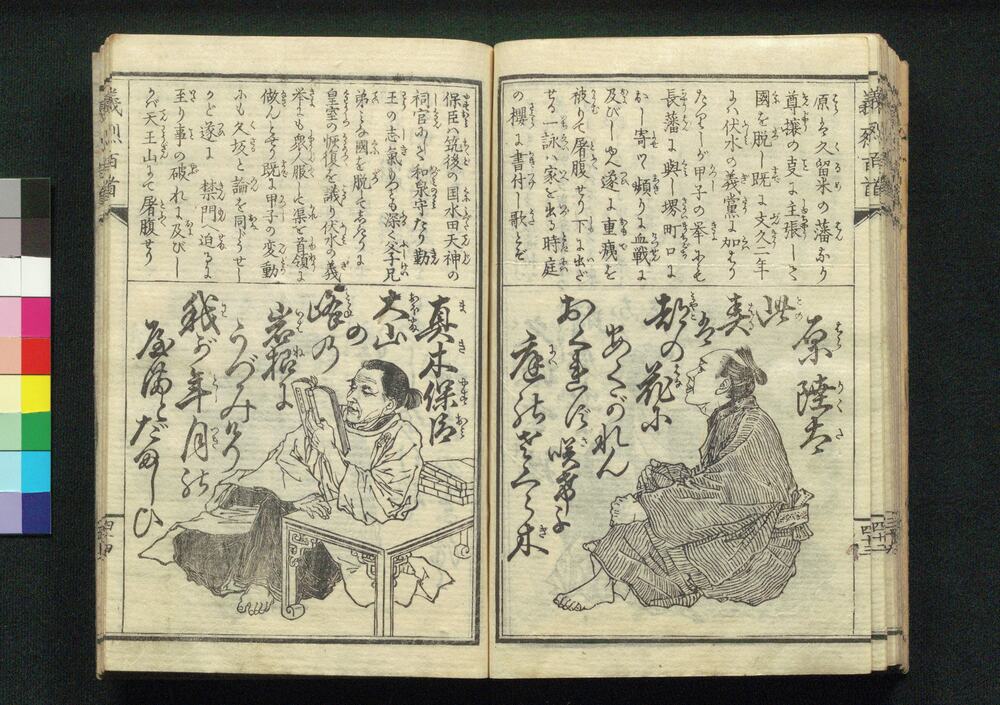 義烈百首
原は久留米の藩なり
尊攘の支に主張して
国を脱し既に文久二年
には伏水の義黨に加はり
たりしが甲子の挙にも
長藩に與し堺町口に
おし寄て頻りに血戦に
及びしゆへ遂に重痍を
被りて屠腹せり下に出ざ
せる一詠ハ家を出る時庭
の櫻に書付し歌とぞ
原陸太
此春は
都の花に
あくがれん
おくれず咲よ
庭のさくら木
四十三
保臣ハ筑後の国水田天神の
祠官にして和泉守たり勤
王の志氣
皇室の恢復を議り伏水の義
挙にも衆に服して渠を首領に
做んとせり既に甲子の変動
にも久坂と論を同うせし
かど遂に禁門へ迫るに
至り事の破れに及びし
かバ天王山にて屠腹せり
真木保臣
大山の
峰の
岩根に
うづみけり
我が年月の
屋満とだましひ
義烈百首
四十四